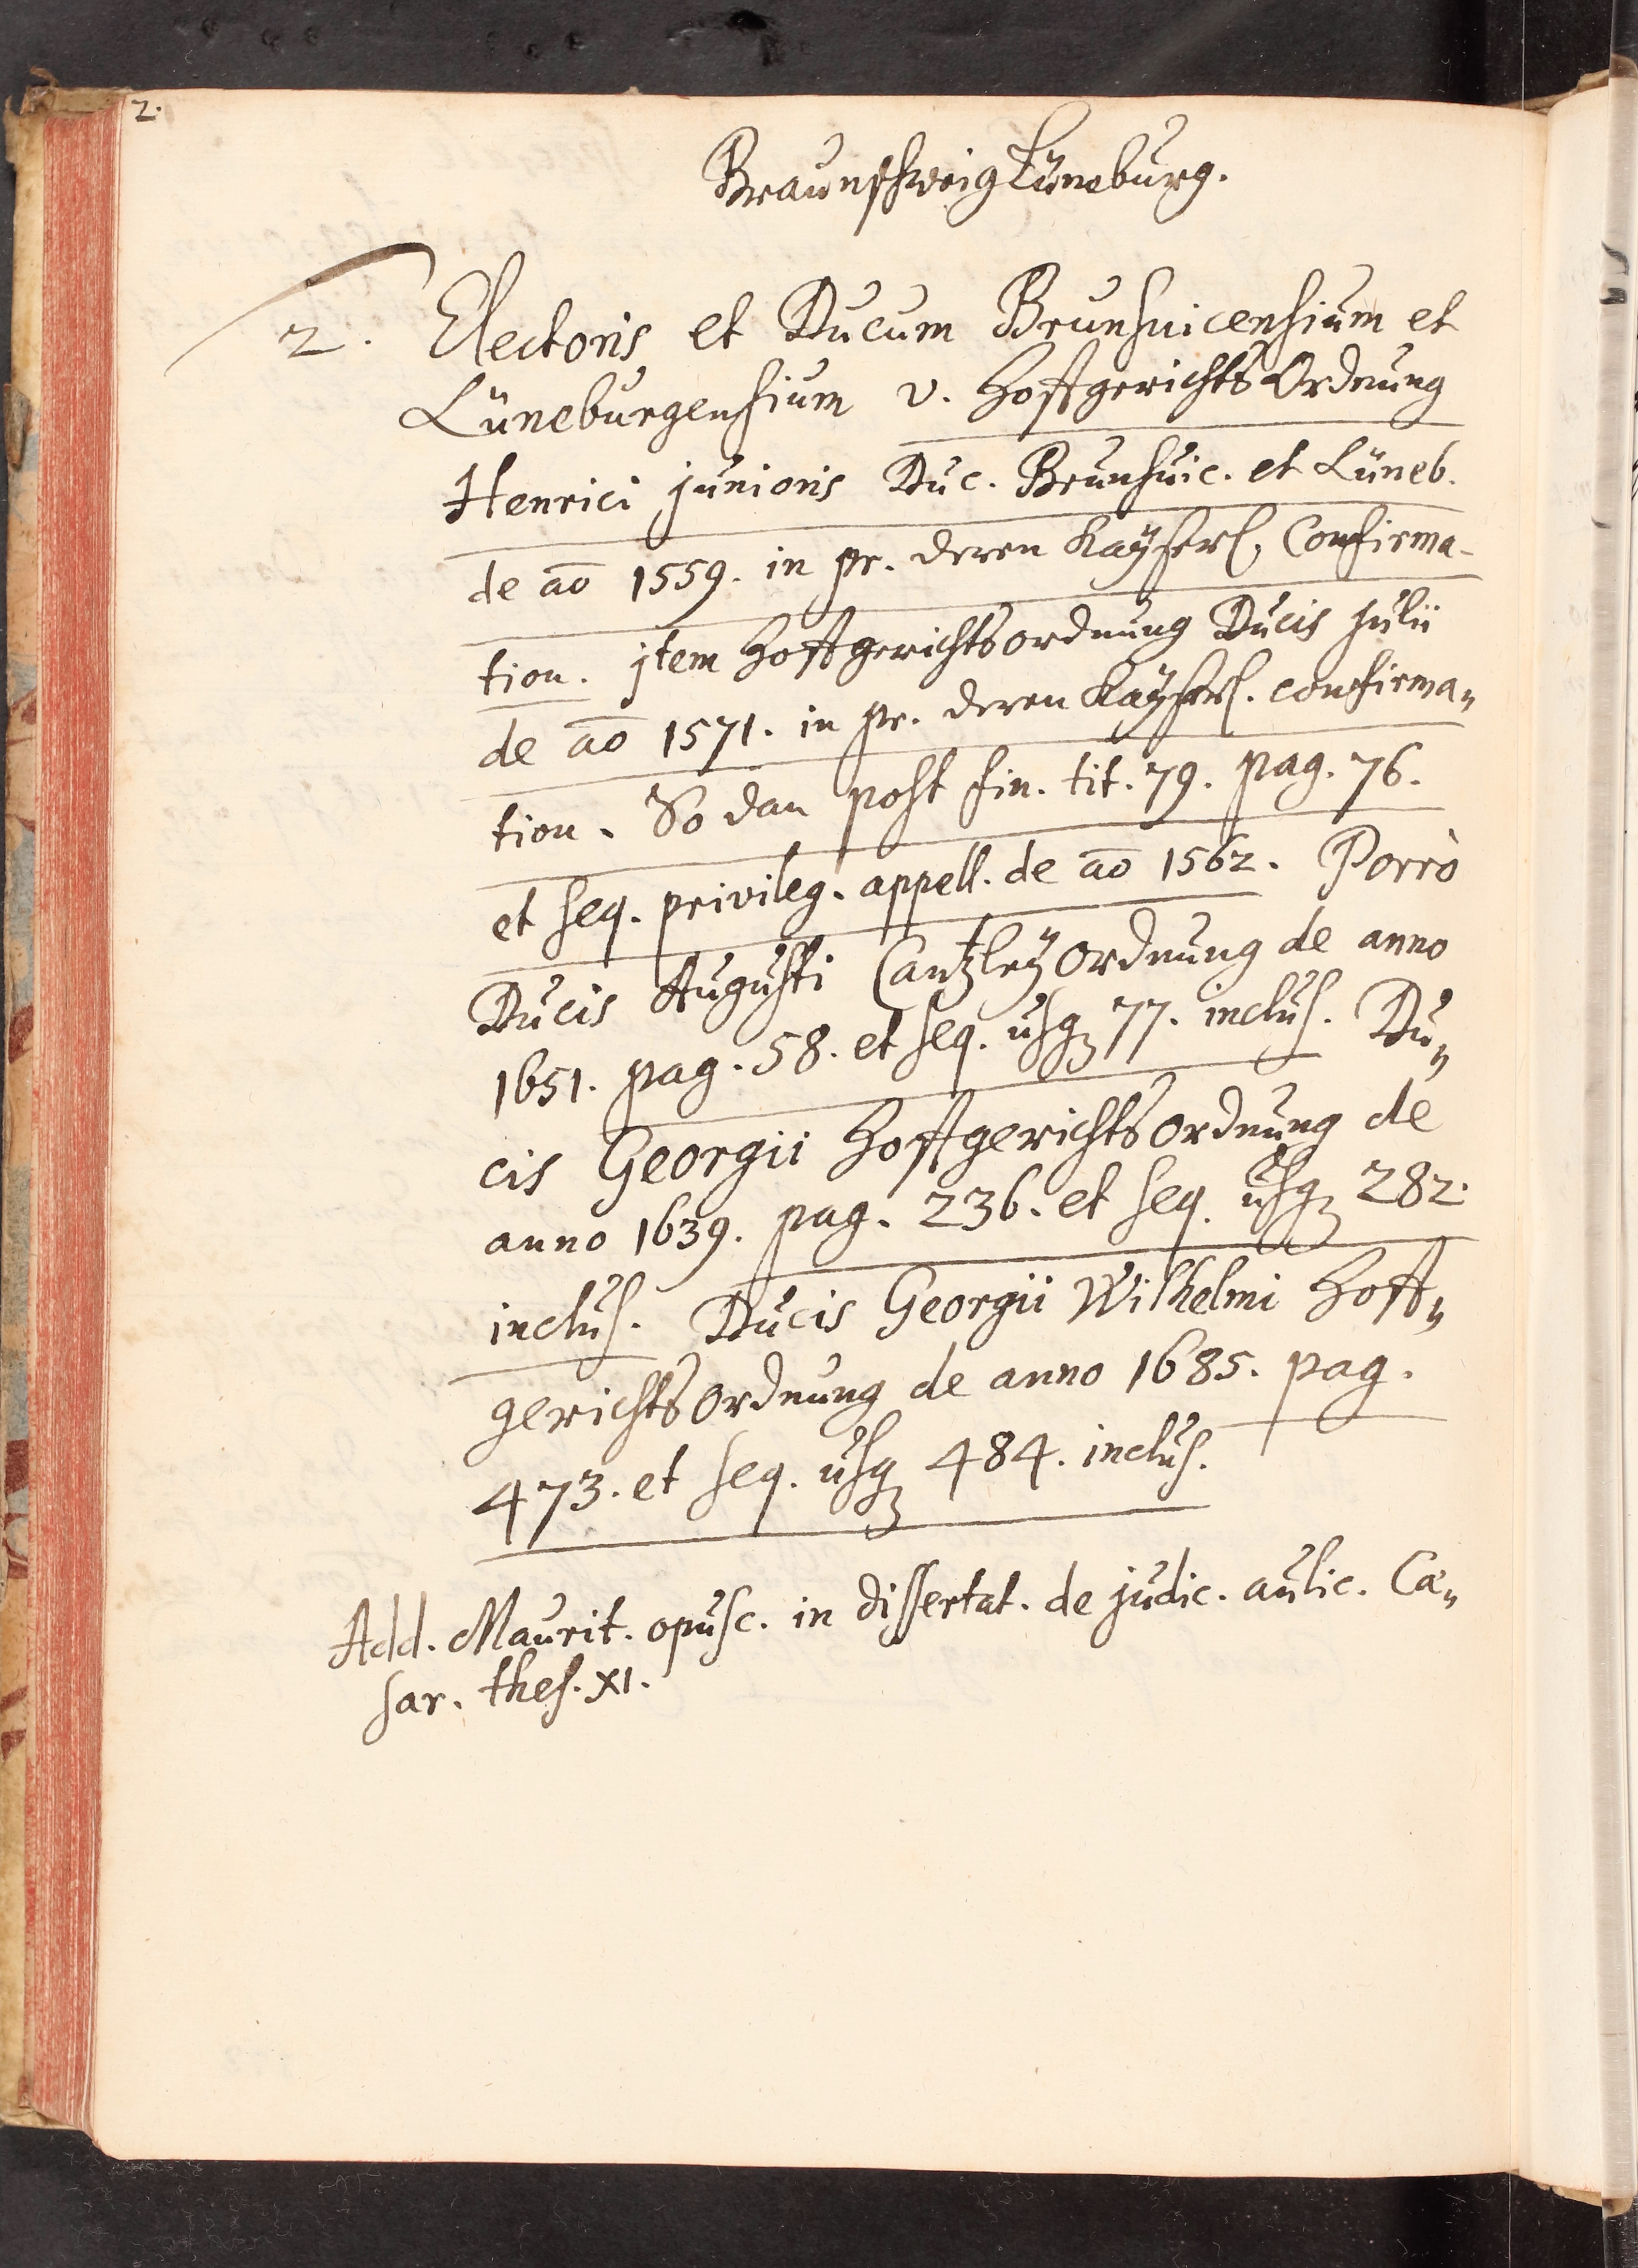 2.
Braunschweig Lüneburg.
2. Electoris et Ducum Brunsuicensium et
Lüneburgensium v. HoffgerichtsOrdnung
Henrici junioris Duc. Brunsuic. et Lüneb.
de ao 1559. in pr. deren Kaÿserl. Confirma-
tion. jtem Hoffgerichtsordnung Ducis Julii
de ao 1571. in pr. deren Kaÿserl. confirma„
tion. So dan post fin. tit. 79. pag. 76.
et seq. privileg. appell. de ao 1562. Porrò
Ducis Augusti CantzleÿOrdnung de anno
1651. pag. 58. et seq. usq3 77. inclus. Du„
cis Georgii HoffgerichtsOrdnung de
anno 1639. pag. 236. et seq. usq3 282.
inclus. Ducis Georgii Wilhelmi Hoff„
gerichtsOrdnung de anno 1685. pag.
473. et seq. usq3 484. inclus.
Add. Maurit. opusc. in dissertat. de judic. aulic. Cæ„
sar. thes. XI.